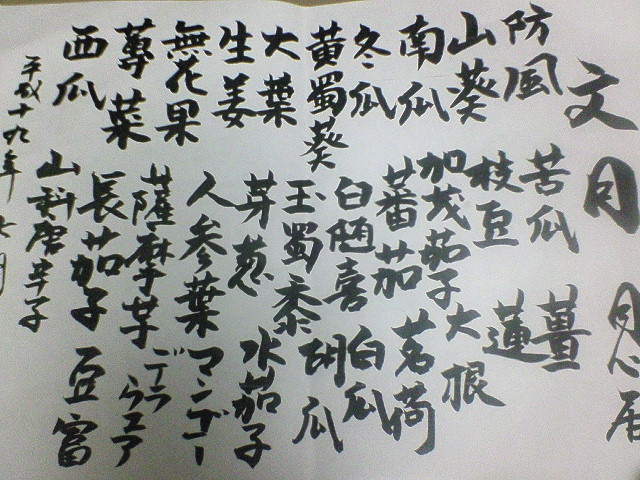 文月 月心居
防風 苦瓜 薑
山葵 枝豆 蓮
南瓜 加茂茄子 大根
冬瓜 蕃茄 茗荷
黄蜀葵 白随喜 白瓜
大葉 玉蜀黍 胡瓜
生姜 芽葱 水茄子
無花果 人参葉 マンゴー
蓴菜 薩摩芋 デラウエア
西瓜 長茄子 豆富
山科唐辛子
平成十九年 七月